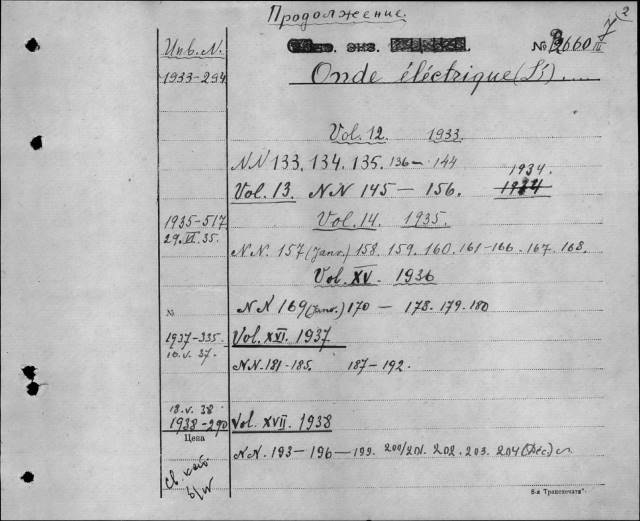 Продолжение.
2
7
Инв. N.
экз.
№ 2660 III
1933-294
Onde éléctrique (L') .....
Vol. 12. 1933.
NN 133. 134. 135. 136 — 144
1934.
Vol. 13. NN 145 — 156. 1934
1935-517
Vol. 14. 1935.
29. VI. 35.
N.N. 157 (Janv.) 158. 159. 160. 161-166. 167. 168.
Vol. XV. 1936
№
NN 169 (Janv.) 170 — 178. 179. 180
1937-335
Vol. XVI. 1937
10. V. 37.
NN. 181-185. 187-192.
18. V. 38
1938-290
Vol. XVII. 1938
Цена
NN. 193-196-199. 200/201. 202. 203. 204 (Déc)
Св. кат.
8-я Транспечать